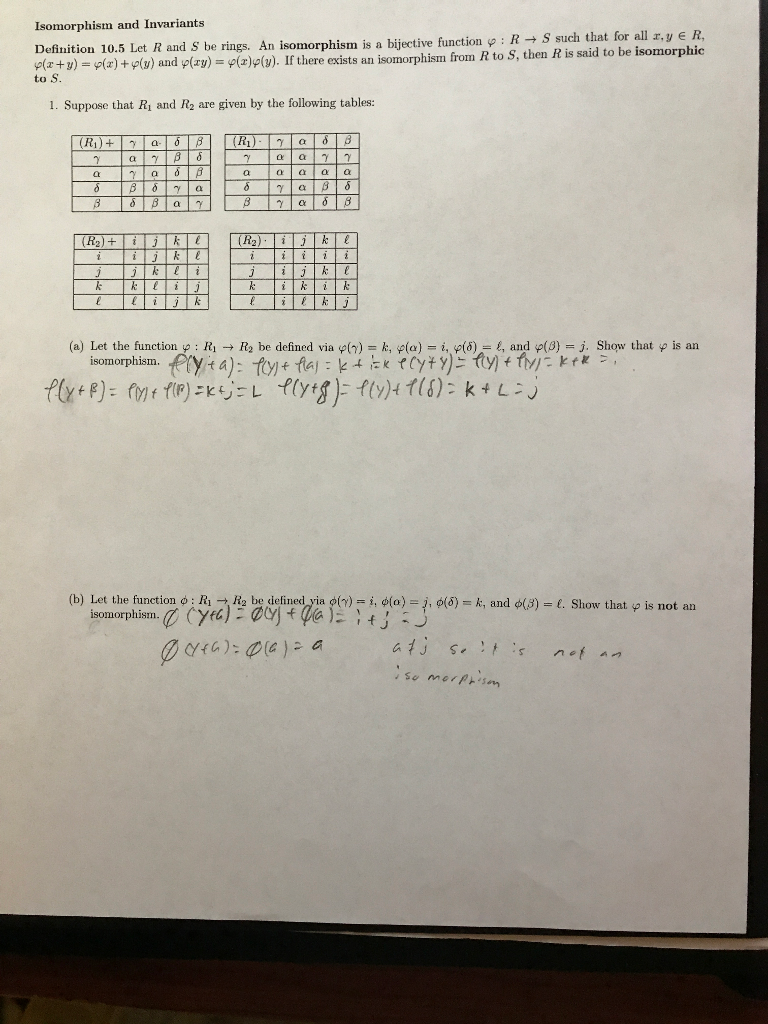 Isomorphism and Invariants
Definition 10.5 Let R and S be rings. An isomorphism is a bijective function φ : R → S such that for all x, y ∈ R,
φ(x + y) = φ(x) + φ(y) and φ(xy) = φ(x)φ(y). If there exists an isomorphism from R to S, then R is said to be isomorphic
to S.
1. Suppose that R₁ and R₂ are given by the following tables:
(R₁)+ γ α δ β (R₁)· γ α δ β
γ α γ β δ γ α α γ γ
α γ α δ β α α α α α
δ β δ γ α δ γ α β δ
β δ β α γ β γ α δ β
(R₂)+ i j k ℓ (R₂)· i j k ℓ
i i j k ℓ i i i i i
j j k ℓ i j i j k ℓ
k k ℓ i j k i k i k
ℓ ℓ i j k ℓ i ℓ k j
(a) Let the function φ : R₁ → R₂ be defined via φ(γ) = k, φ(α) = i, φ(δ) = ℓ, and φ(β) = j. Show that φ is an
isomorphism. φ(γ+a) = φ(γ) + φ(a) = k + i = k φ(γ+γ) = φ(γ) + φ(γ) = k+k = i
φ(γ+β) = φ(γ) + φ(β) = k+j = L φ(γ+δ) = φ(γ) + φ(δ) = k + L = j
(b) Let the function ϕ : R₁ → R₂ be defined via ϕ(γ) = i, ϕ(α) = j, ϕ(δ) = k, and ϕ(β) = ℓ. Show that φ is not an
isomorphism. ∅(γ+a) = ∅(γ) + ∅(a) = i + j = j
∅(γ+a) = ∅(a) = a a ≠ j so it is not an
isomorphism